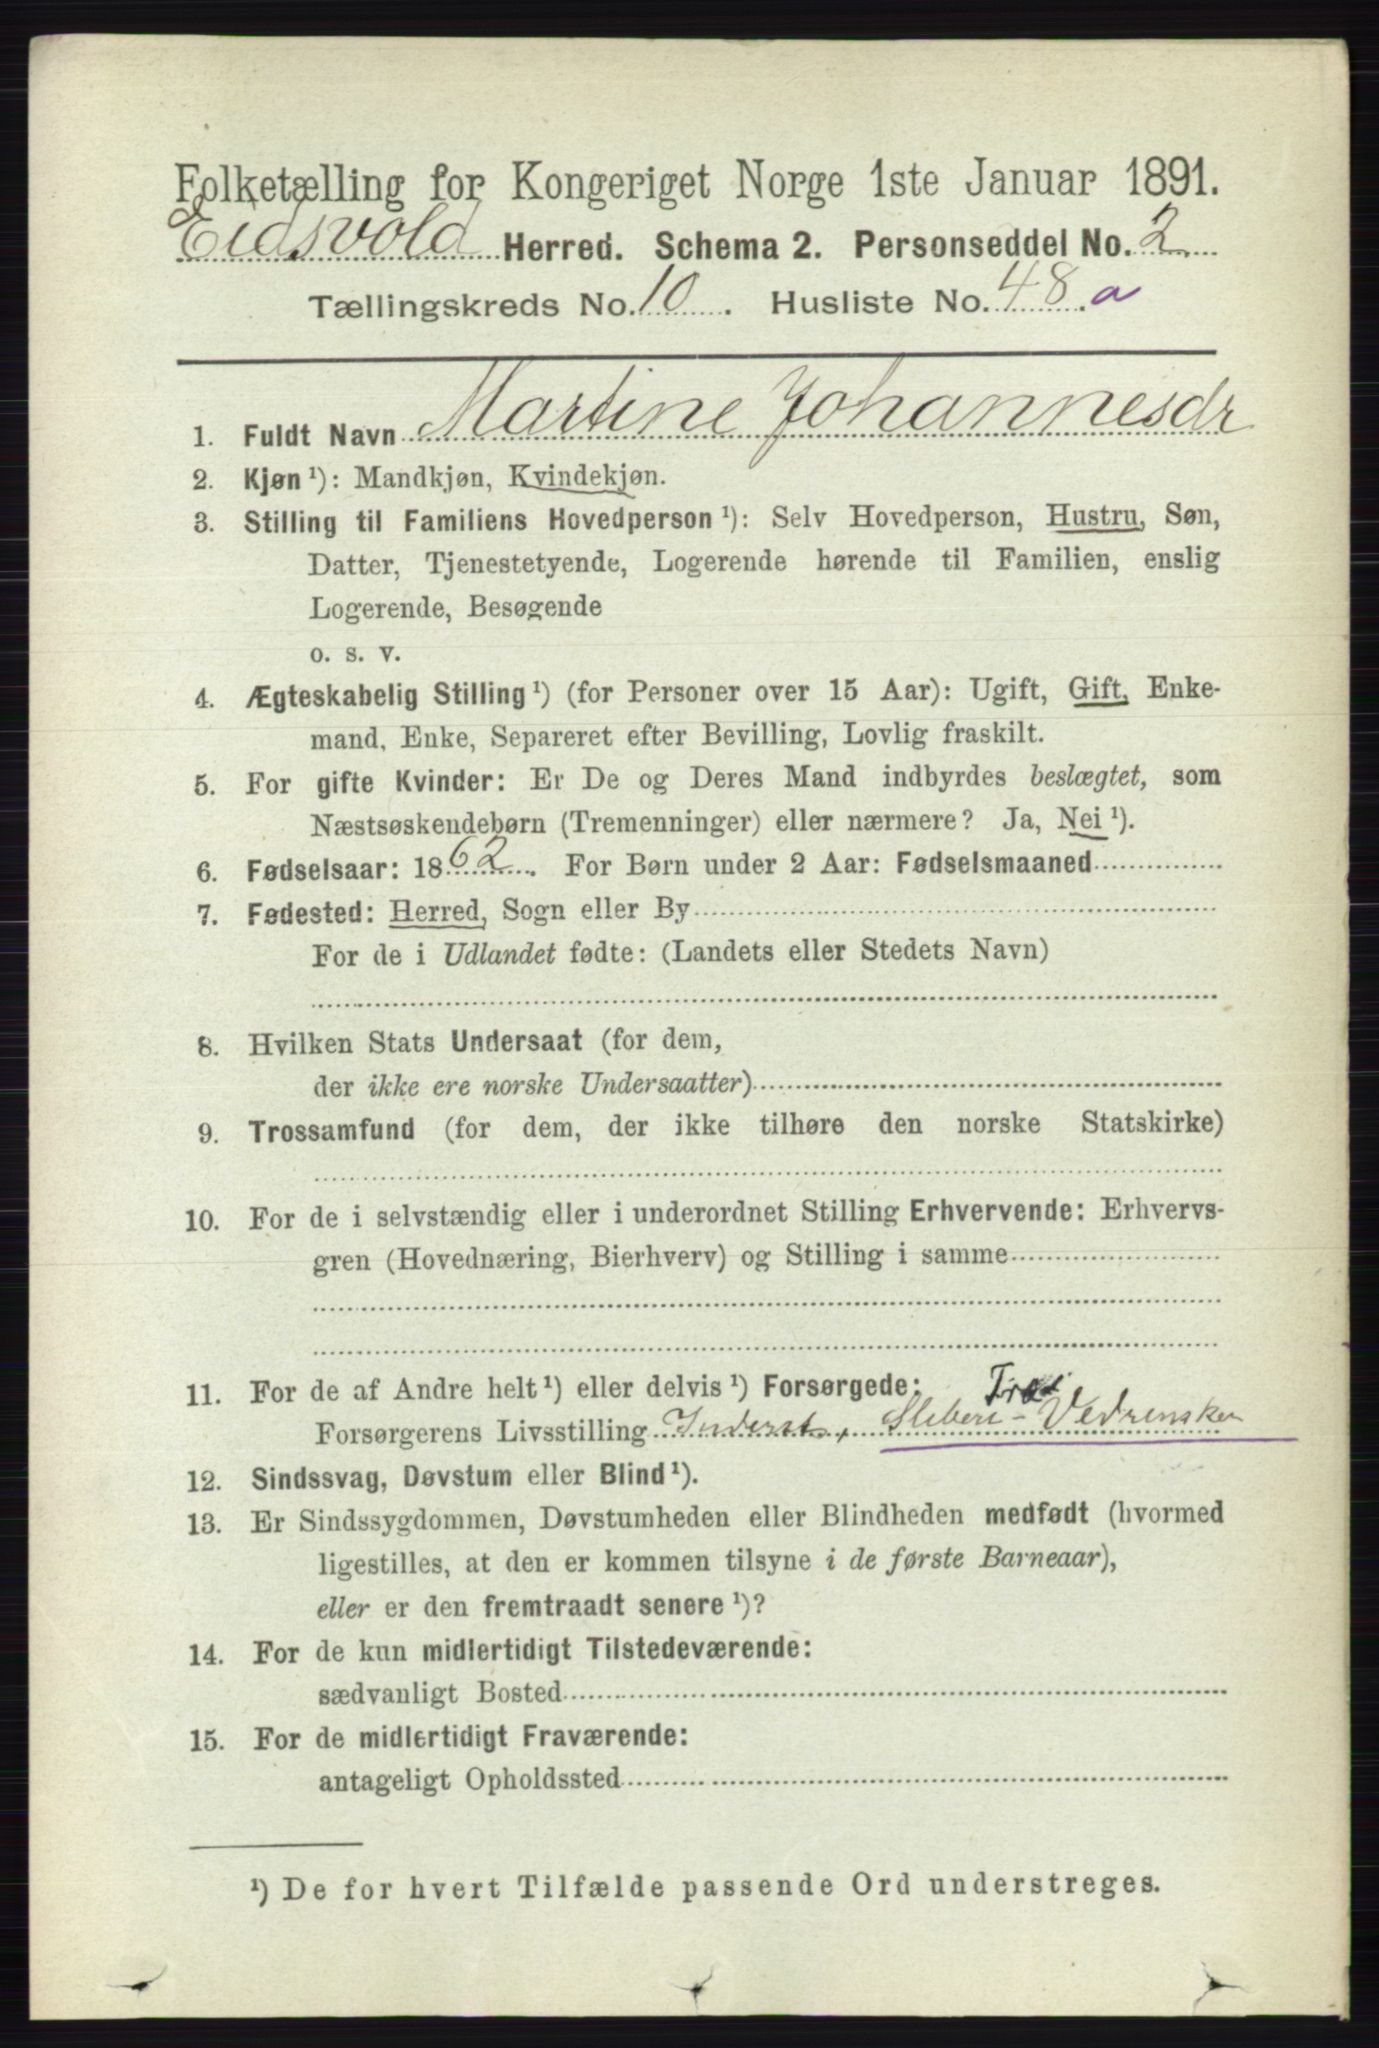 Folketælling for Kongeriget Norge 1ste Januar 1891.
Eidsvold Herred. Schema 2. Personseddel No. 2
Tællingskreds No. 10. Husliste No. 48.a
1. Fuldt Navn Martine Johannesdr
2. Kjøn ¹): Mandkjøn, Kvindekjøn.
3. Stilling til Familiens Hovedperson ¹): Selv Hovedperson, Hustru, Søn,
Datter, Tjenestetyende, Logerende hørende til Familien, enslig
Logerende, Besøgende
o. s. v.
4. Ægteskabelig Stilling ¹) (for Personer over 15 Aar): Ugift, Gift, Enke-
mand, Enke, Separeret efter Bevilling, Lovlig fraskilt.
5. For gifte Kvinder: Er De og Deres Mand indbyrdes beslægtet, som
Næstsøskendebørn (Tremenninger) eller nærmere? Ja, Nei ¹).
6. Fødselsaar: 1862. For Børn under 2 Aar: Fødselsmaaned
7. Fødested: Herred, Sogn eller By
For de i Udlandet fødte: (Landets eller Stedets Navn)
8. Hvilken Stats Undersaat (for dem,
der ikke ere norske Undersaatter)
9. Trossamfund (for dem, der ikke tilhøre den norske Statskirke)
10. For de i selvstændig eller i underordnet Stilling Erhvervende: Erhvervs-
gren (Hovednæring, Bierhverv) og Stilling i samme
11. For de af Andre helt ¹) eller delvis ¹) Forsørgede: Træ
Forsørgerens Livsstilling Inderst, Sliberi-Vedrensker
12. Sindssvag, Døvstum eller Blind ¹).
13. Er Sindssygdommen, Døvstumheden eller Blindheden medfødt (hvormed
ligestilles, at den er kommen tilsyne i de første Barneaar),
eller er den fremtraadt senere ¹)?
14. For de kun midlertidigt Tilstedeværende:
sædvanligt Bosted
15. For de midlertidigt Fraværende:
antageligt Opholdssted
¹) De for hvert Tilfælde passende Ord understreges.